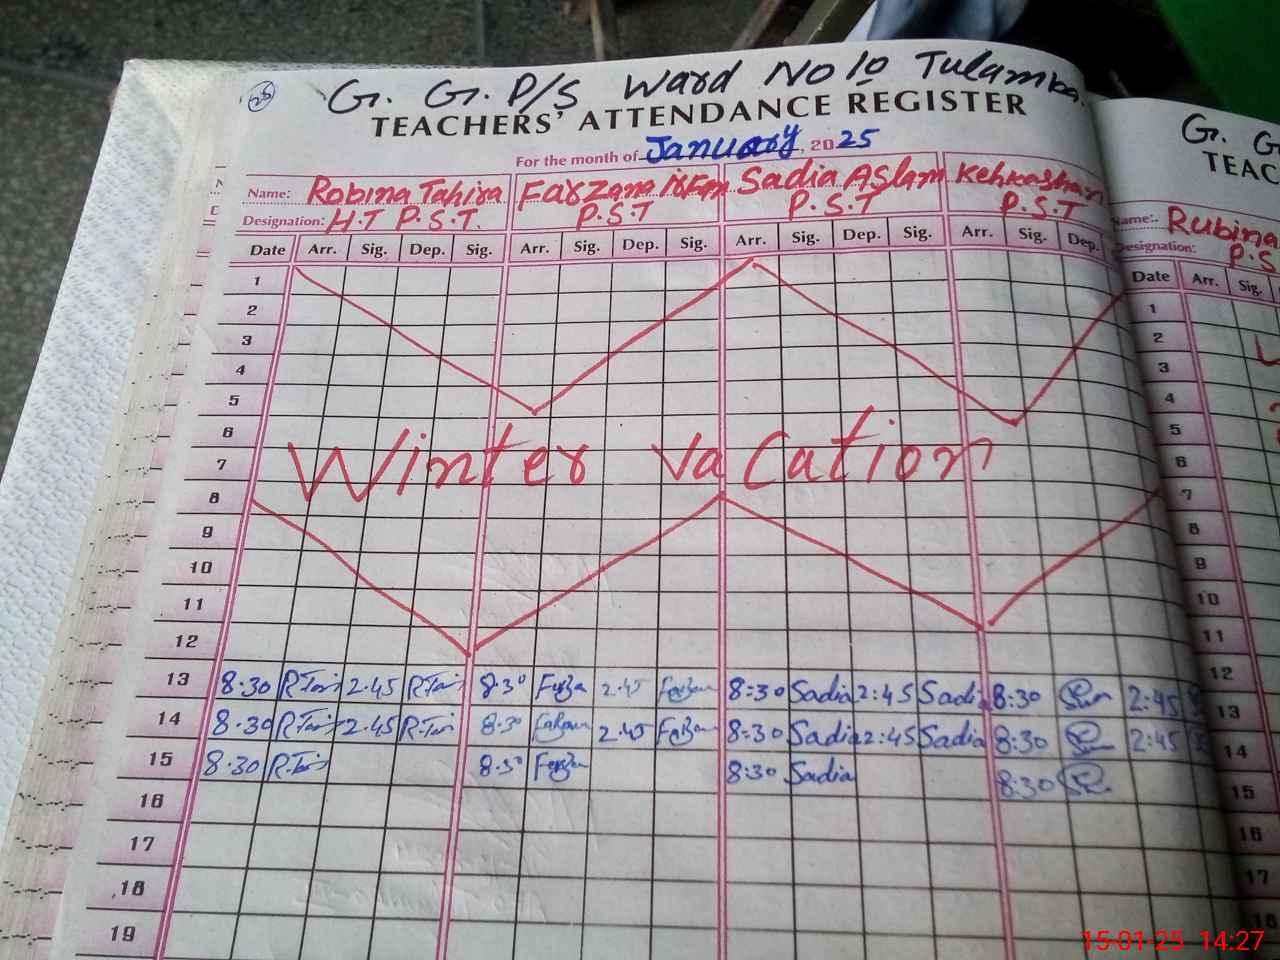 26
G. G. P/S Ward No 10 Tulamba.
TEACHERS' ATTENDANCE REGISTER
For the month of January, 2025
Name: Robina Tahira Farzana Irem Sadia Aslam Kehkashan
Designation: H.T P.S.T. P.S.T P.S.T P.S.T
Date Arr. Sig. Dep. Sig. Arr. Sig. Dep. Sig. Arr. Sig. Dep. Sig. Arr. Sig. Dep.
1
2
3
4
5
6
7
Winter Vacation
8
9
10
11
12
13 8:30 R.Tari 2.45 R.Tari 8:30 Farza 2:45 Farzan 8:30 Sadia 2:45 Sadia 8:30 2:45
14 8:30 R.Tari 2.45 R.Tari 8:30 Farzan 2:45 Farzan 8:30 Sadia 2:45 Sadia 8:30 2:45
15 8:30 R.Tari 8:30 Farzan 8:30 Sadia 8:30
16
17
18
19
G. G
TEAC
Name: Rubina
Designation: P.S
Date Arr. Sig.
1
2
3
4
5
6
7
8
9
10
11
12
13
14
15
16
17
18
15-01-25 14:27